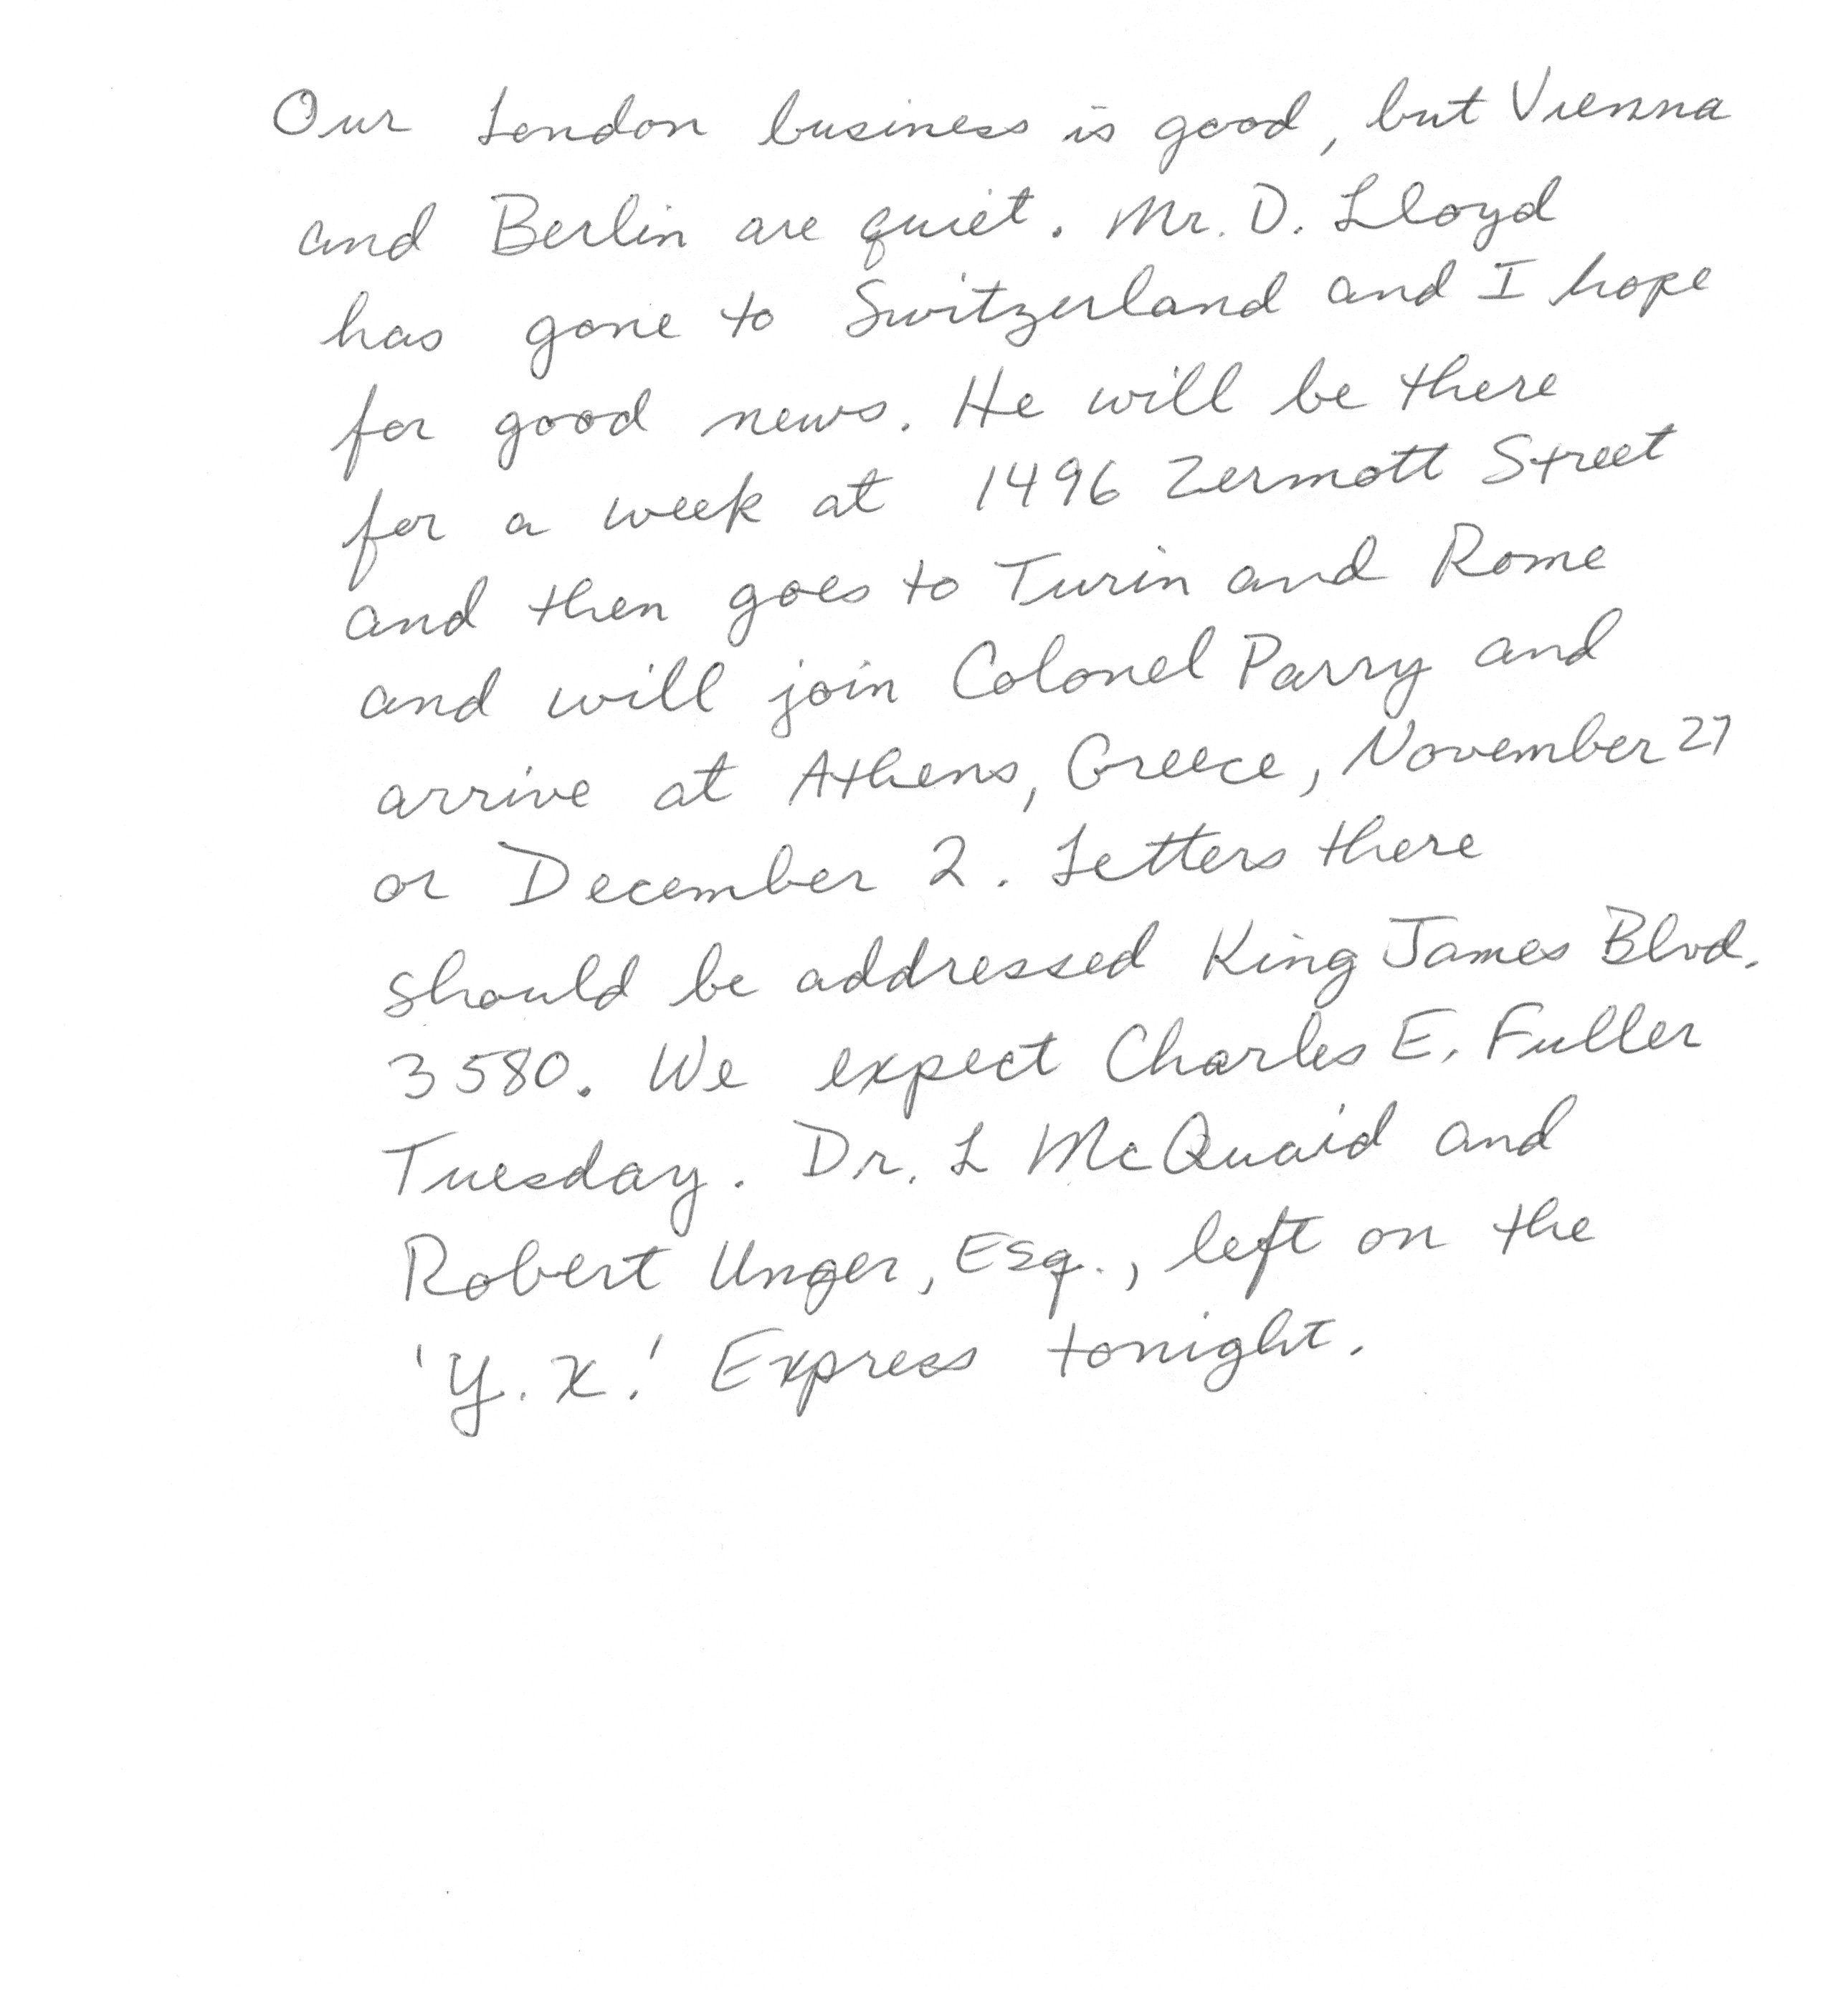 Our London business is good, but Vienna
and Berlin are quiet. Mr. D. Lloyd
has gone to Switzerland and I hope
for good news. He will be there
for a week at 1496 Zermott Street
and then goes to Turin and Rome
and will join Colonel Parry and
arrive at Athens, Greece, November 27
or December 2. Letters there
should be addressed King James Blvd.
3580. We expect Charles E. Fuller
Tuesday. Dr. L McQuaid and
Robert Unger, Esq., left on the
'Y.X.' Express tonight.